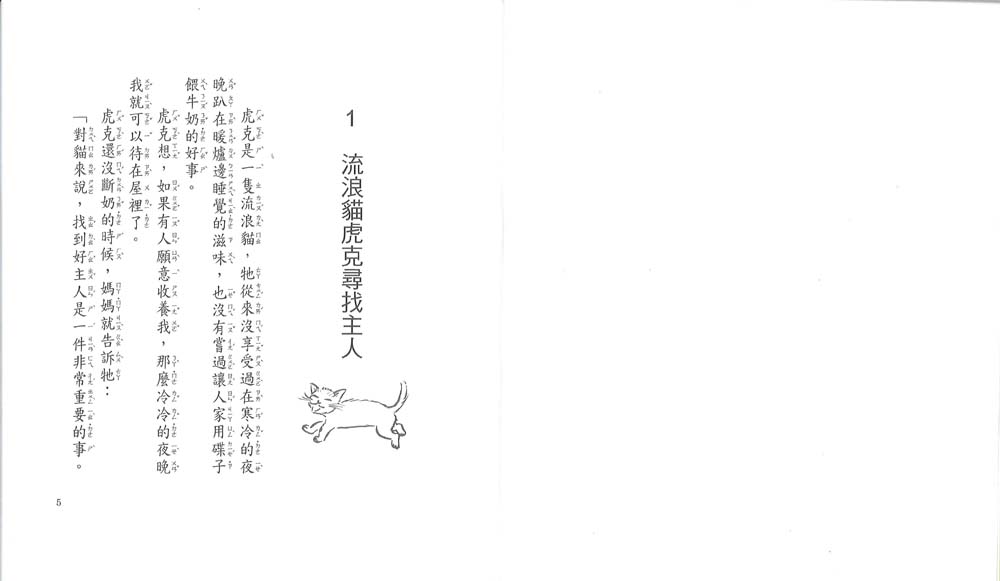 1 流浪貓虎克尋找主人
虎克是一隻流浪貓，牠從來沒享受過在寒冷的夜
晚趴在暖爐邊睡覺的滋味，也沒有嘗過讓人家用碟子
餵牛奶的好事。
虎克想，如果有人願意收養我，那麼冷冷的夜晚
我就可以待在屋裡了。
虎克還沒斷奶的時候，媽媽就告訴牠：
「對貓來說，找到好主人是一件非常重要的事。
5